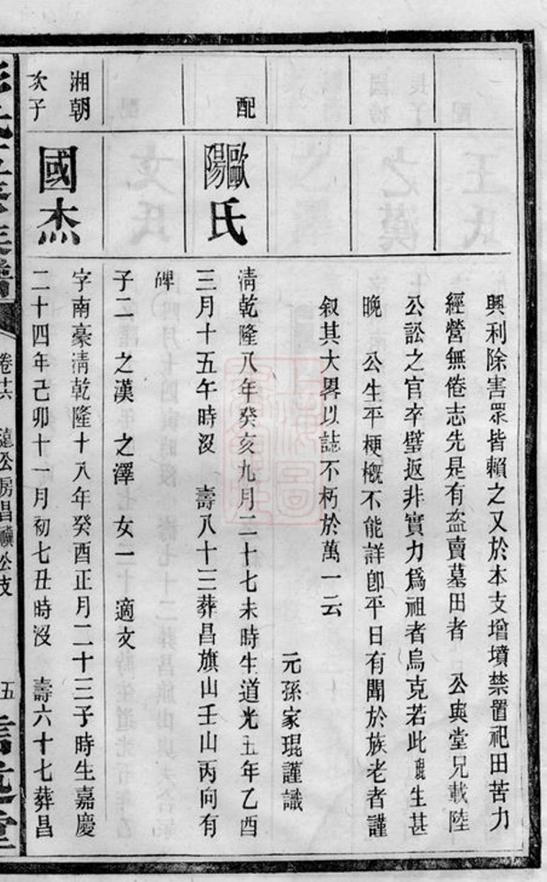 興利除害眾皆賴之又於本支增墳禁置祀田苦力
經營無倦志先是有盜賣墓田者　公與堂兄載陸
公訟之官卒璧返非實力為祖者烏克若此琨生甚
晚　公生平梗概不能詳卽平日有聞於族老者謹
叙其大畧以誌不朽於萬一云
元孫家琨謹識
配
歐陽氏
淸乾隆八年癸亥九月二十七未時生道光五年乙酉
三月十五午時沒　壽八十三葬昌旗山壬山丙向有
碑
子二　之漢　之澤　女一　適文
湘朝
次子
國杰
字南豪淸乾隆十八年癸酉正月二十三子時生嘉慶
二十四年己卯十一月初七丑時沒　壽六十七葬昌
族譜
卷廿六
公房昌礦公支
五